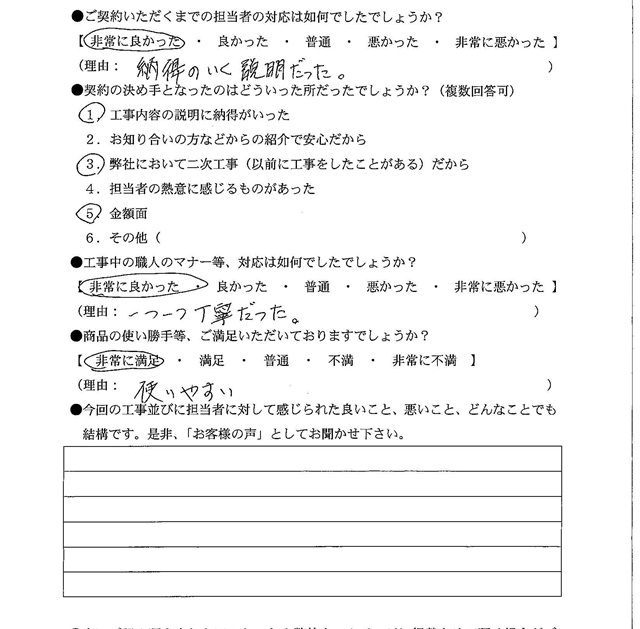 ●ご契約いただくまでの担当者の対応は如何でしたでしょうか？
【 非常に良かった ・ 良かった ・ 普通 ・ 悪かった ・ 非常に悪かった 】
(理由： 納得のいく説明だった。 )
●契約の決め手となったのはどういった所だったでしょうか？（複数回答可）
１．工事内容の説明に納得がいった
２．お知り合いの方などからの紹介で安心だから
３．弊社において二次工事（以前に工事をしたことがある）だから
４．担当者の熱意に感じるものがあった
５．金額面
６．その他（ ）
●工事中の職人のマナー等、対応は如何でしたでしょうか？
【 非常に良かった ・ 良かった ・ 普通 ・ 悪かった ・ 非常に悪かった 】
(理由： 一つ一つ丁寧だった。 )
●商品の使い勝手等、ご満足いただいておりますでしょうか？
【 非常に満足 ・ 満足 ・ 普通 ・ 不満 ・ 非常に不満 】
(理由： 使いやすい )
●今回の工事並びに担当者に対して感じられた良いこと、悪いこと、どんなことでも
結構です。是非、「お客様の声」としてお聞かせ下さい。